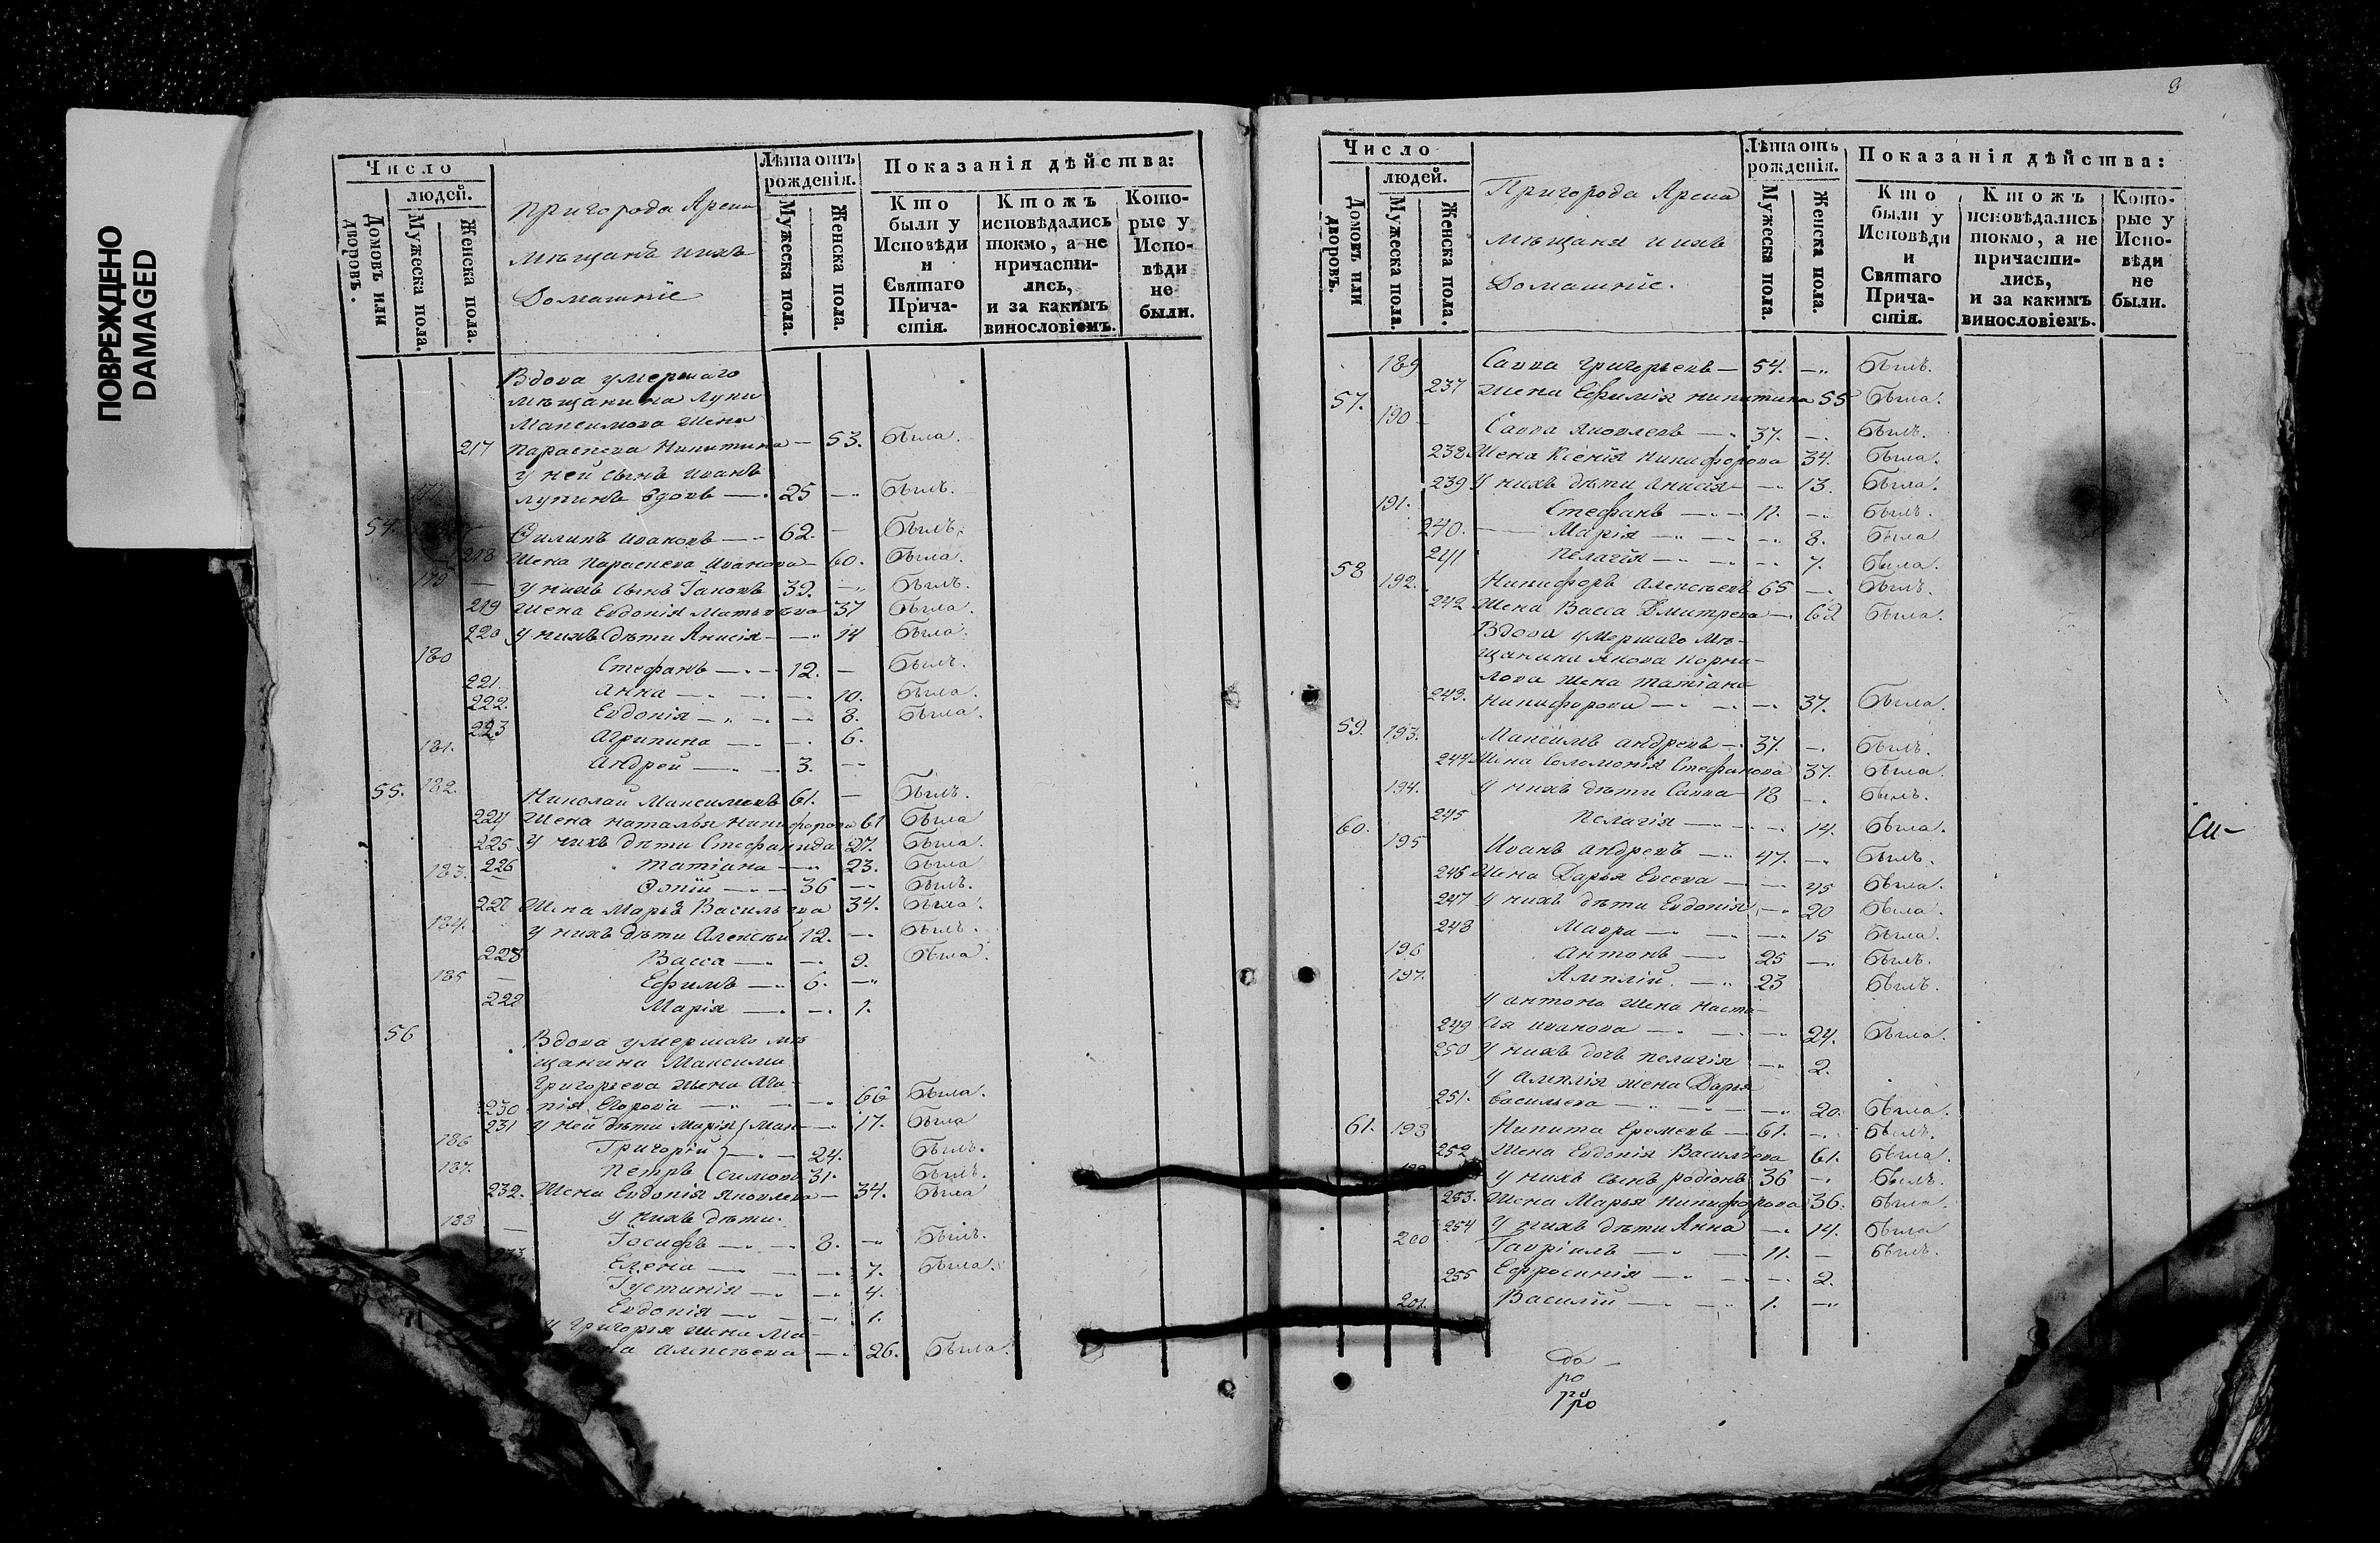 ПОВРЕЖДЕНО
DAMAGED
Число
людей.
Домовъ или дворовъ.
Мужеска пола.
Женска пола.
Пригорода Арска
мѣщанѣ ихъ
Домашніе
Лѣта отъ рожденія.
Мужеска пола.
Женска пола.
Показанія дѣйства:
Кто были у Исповѣди и Святаго Причастія.
Ктожъ исповѣдались токмо, а не причастились, и за какимъ винословіемъ.
Которые у Исповѣди не были.
Вдова умершаго
мѣщанина Лупи
Максимова Жена
217 Параскева Никитина — 53. была.
у ней сынъ Иванъ
Лупинъ вдовъ — 25 — былъ.
54. Филипъ Ивановъ — 62. — былъ.
218 Жена Параскева Иванова — 60. была.
179 — у нихъ сынъ Іаковъ 39. — былъ.
219 Жена Евдокія Матвѣева 37 была.
220 у нихъ дѣти Анисія — 14 была.
180 Стефанъ — 12. — былъ.
221. Анна — 10. была.
222. Евдокія — 8. была.
223 Агрипина — 6.
181. Андрей — 3. —
55. 182. Николай Максимовъ 61. — былъ.
224 Жена Наталья Никифорова 61 была
225 у нихъ дѣти Стефанида 27. была.
226 Татіана — 23. была
183. — 36 — былъ.
227 Жена Марья Васильева 34. была.
184. у нихъ дѣти Алексѣй 12. — былъ.
228 Васса — 9. была.
185 — Ефимъ — 6. —
229 Марія — 1.
56 Вдова умершаго мѣ
щанина Максима
Григорьева жена Ага-
230 пія Егорова — 66 была.
231 у ней дѣти Марія Мак — 17. была
186 Григорій — 24. былъ.
187. Петръ Симовы 31. былъ.
232. Жена Евдокія Яковлева — 34. была
у нихъ дѣти.
188 — Іосифъ — 8. — былъ.
233 Елена — 7. была.
Іустинія — 4.
Евдокія — 1.
У Григорья жена Ма-
Алексѣева — 26. была.
8
Число
людей.
Домовъ или дворовъ.
Мужеска пола.
Женска пола.
Пригорода Арска
мѣщаня и ихъ
Домашніе.
Лѣта отъ рожденія.
Мужеска пола.
Женска пола.
Показанія дѣйства:
Кто были у Исповѣди и Святаго Причастія.
Ктожъ исповѣдались токмо, а не причастились, и за какимъ винословіемъ.
Которые у Исповѣди не были.
189 Савва Григорьевъ — 54. — былъ.
237 Жена Ефимія Никитина 55 была.
57. 190 — Савва Яковлевъ — 37. — былъ.
238 Жена Ксенія Никифорова 34. была.
239 У нихъ дѣти Анисія — 13. была.
191. Стефанъ — 11. — былъ.
240. Марія — 8. была
241 Пелагія — 7. была.
58 192. Никифоръ Алексѣевъ 65 — былъ.
242 Жена Васса Дмитрева — 62 была.
Вдова умершаго мѣ-
щанина Якова Корни-
лова жена Татіана
243. Никифорова — 37. была.
59. 193. Максимъ Андревъ — 37. — былъ.
244 Жена Соломонія Стефанова 37. была.
194. У нихъ дѣти Савва — 18 — былъ.
245 Пелагія — 14. была.
60. 195 Иванъ Андревъ — 47. — былъ.
246 Жена Дарья Евсева — 45 была.
247 У нихъ дѣти Евдокія — 20 была.
248 Мавра — 15 была.
196 Антонъ — 25 — былъ.
197. Амплій. — 23 былъ.
У Антона жена Наста-
249 сія Иванова — 24. была.
250 У нихъ дочь Пелагія — 2.
У Амплія жена Дарья
251. Васильева — 20. была.
61. 198 Никита Еремевъ — 61. — былъ.
252 Жена Евдокія Васильева 61. была.
У нихъ сынъ Родіонъ 36 — былъ.
253. Жена Марья Никифорова 36. была.
254 У нихъ дѣти Анна — 14. была
200 Гавріилъ — 11. — былъ.
255 Ефросинія — 2.
201. Василій — 1. —
си-